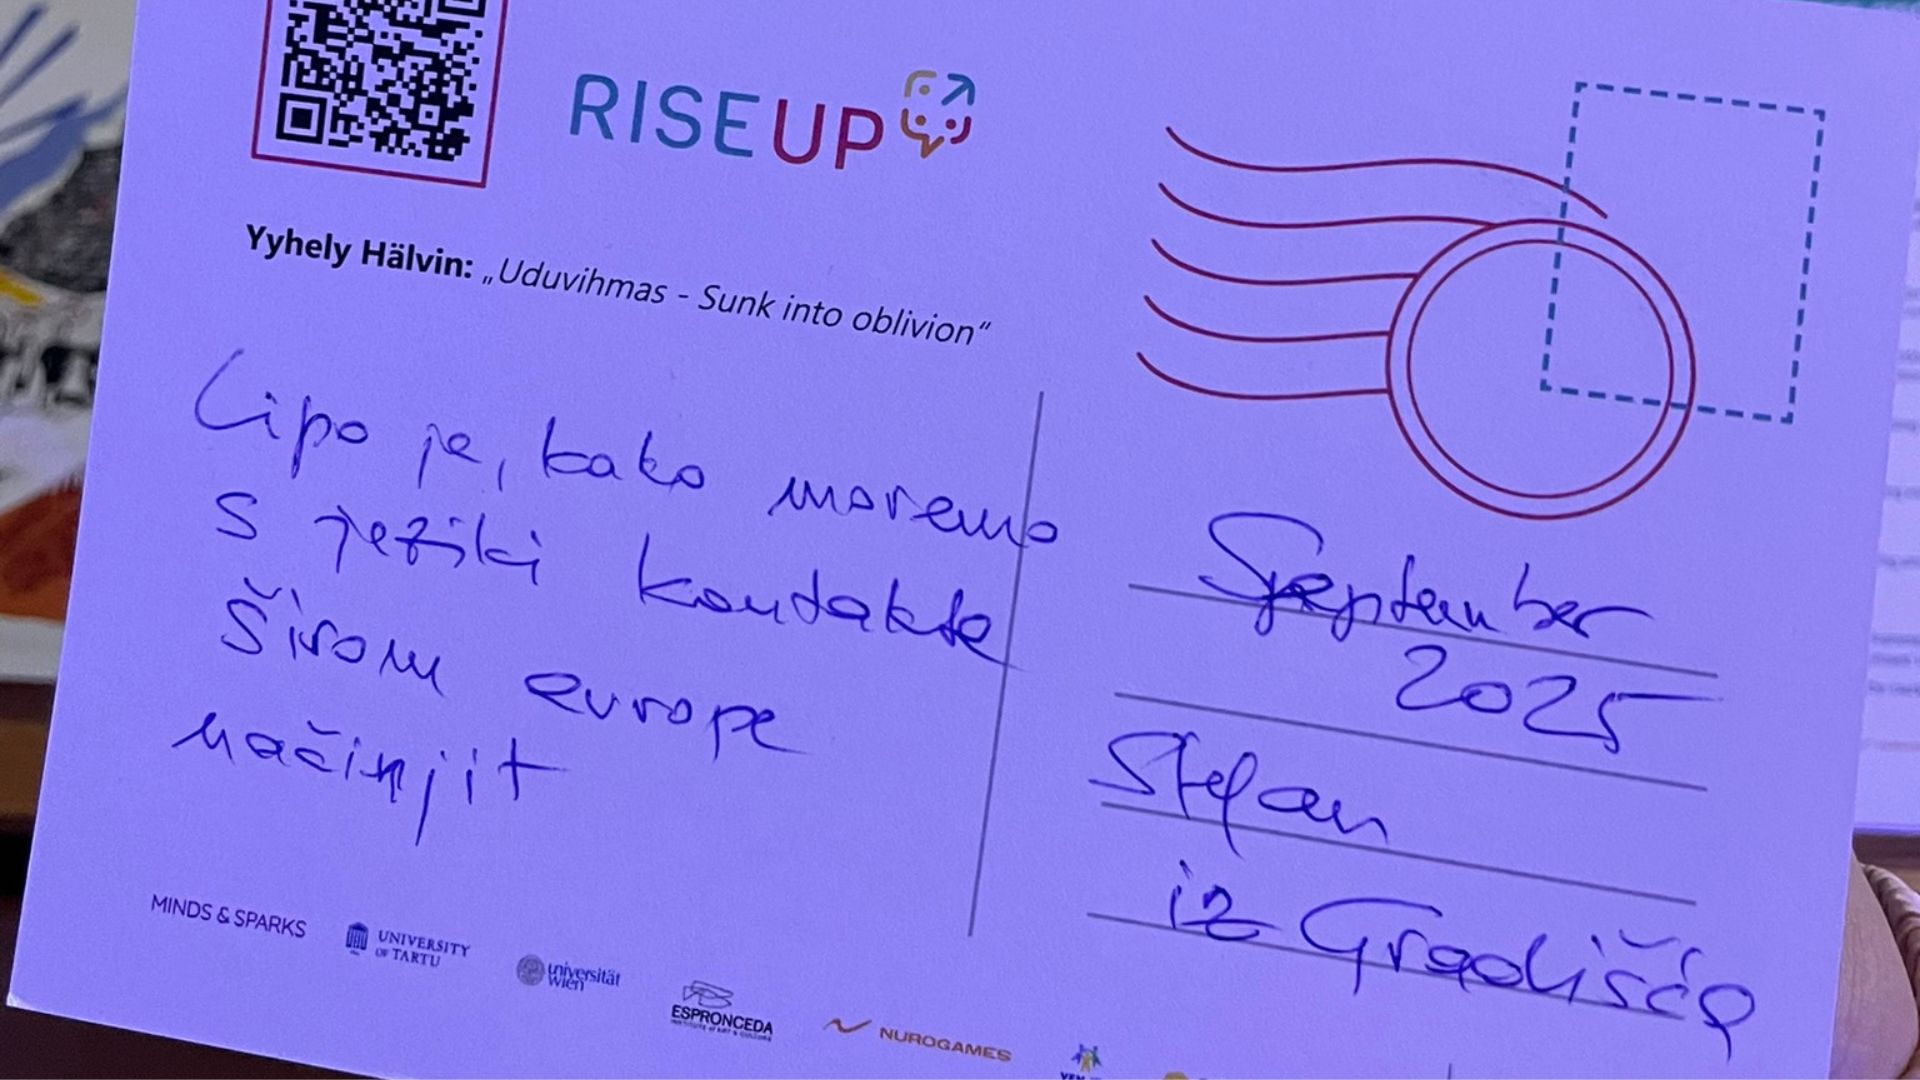 RISEUP
Yyhely Hälvin: „Uduvihmas - Sunk into oblivion“
Lipo je, kako moremo
s jeziki kontakte
širom europe
načinjit
September
2025
Stefan
iz Gradišća
MINDS & SPARKS
UNIVERSITY
OF TARTU
universität
wien
ESPRONCEDA
INSTITUTE OF ART & CULTURE
NUROGAMES